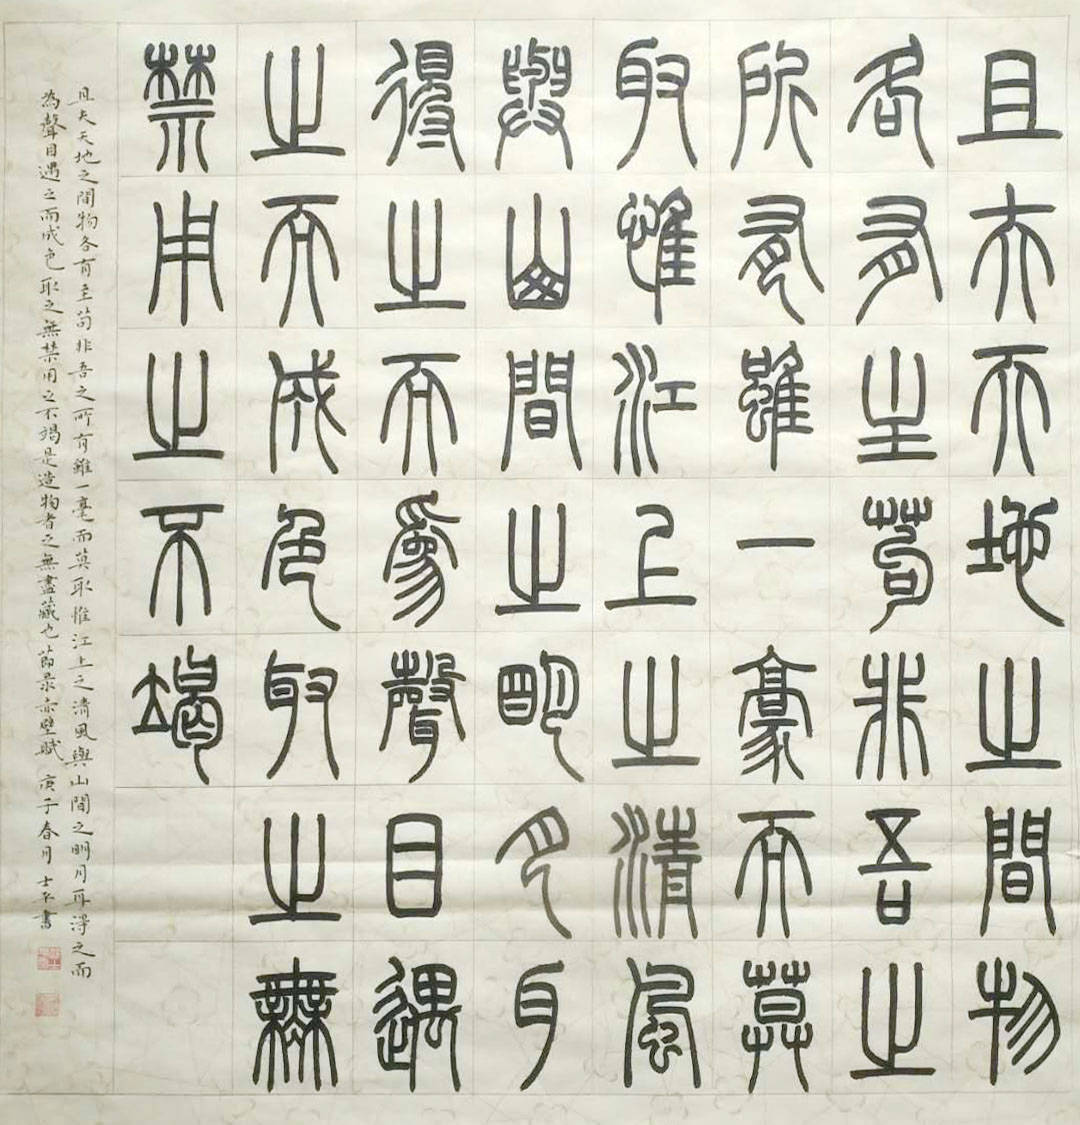 且夫天地之間物
各有主苟非吾之
所有雖一豪而莫
取惟江上之清風
與山間之朙月耳
得之而為聲目遇
之而成色取之無
禁用之不竭
且夫天地之間物各有主苟非吾之所有雖一毫而莫取惟江上之清風與山間之明月耳得之而
為聲目遇之而成色取之無禁用之不竭是造物者之無盡藏也節录赤壁賦 庚子春月 士書